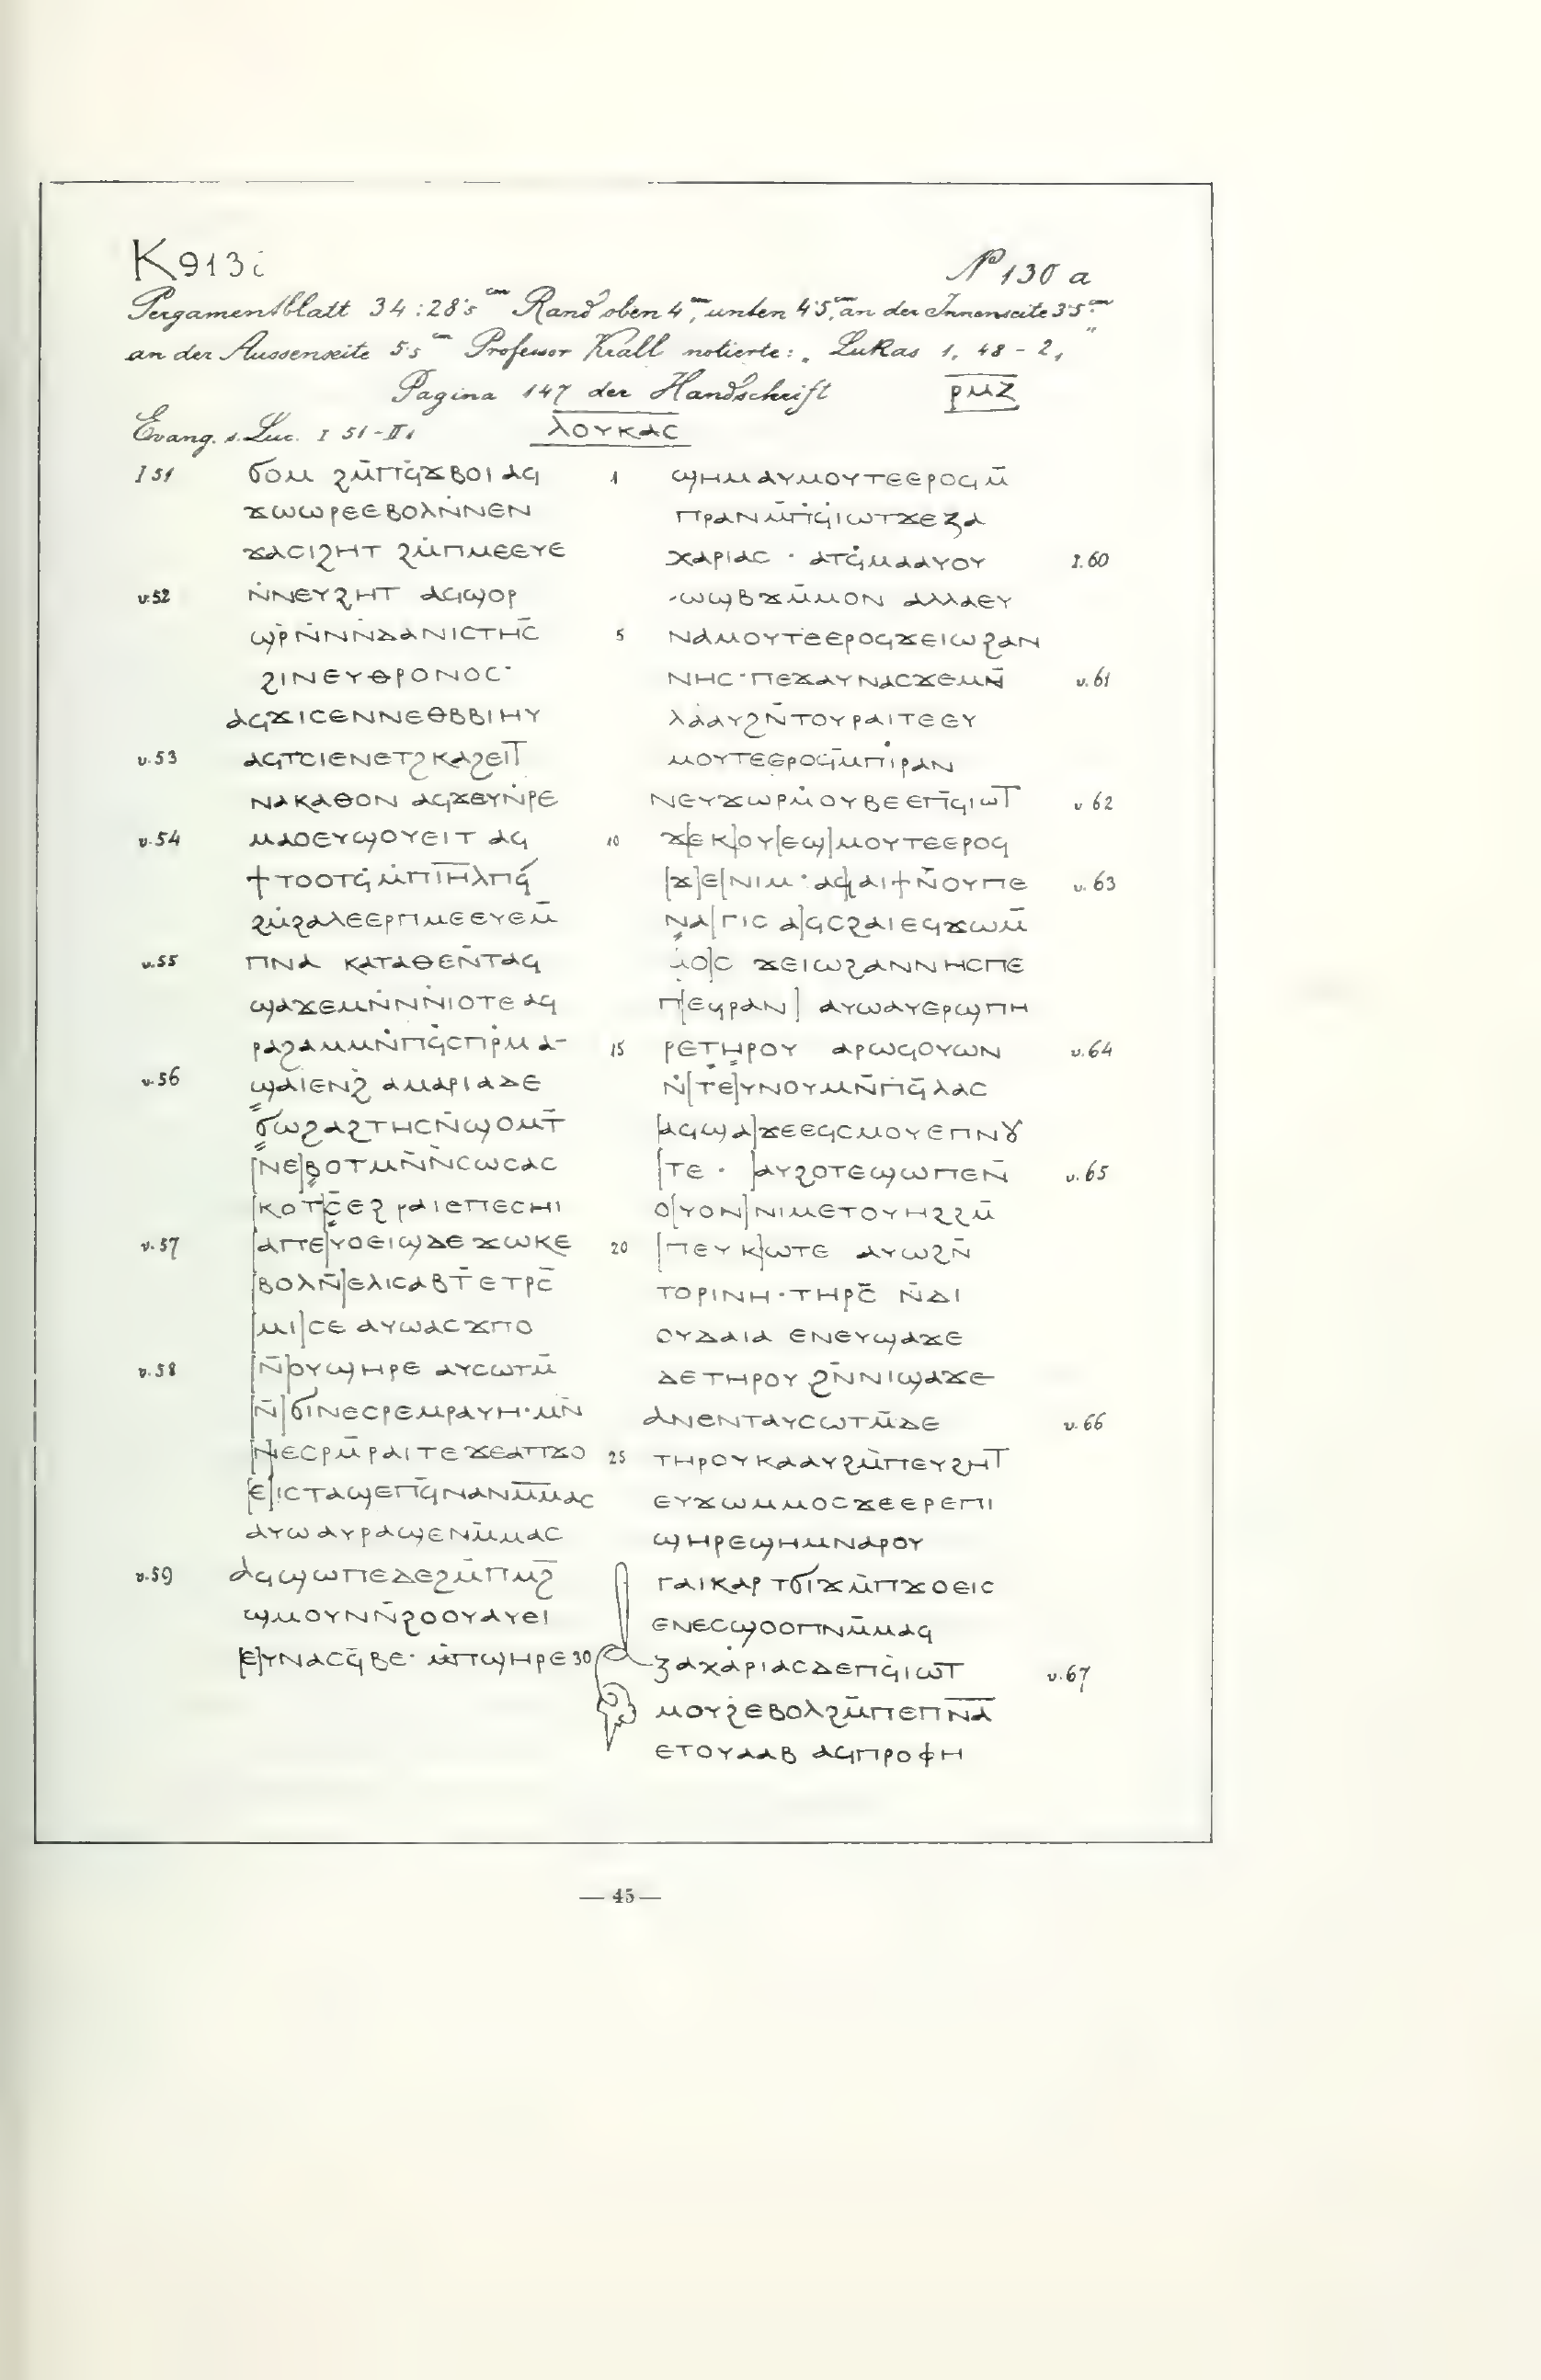 K 913 i
№ 130 a
Pergamentblatt 34 : 28·5 cm Rand oben 4 cm, unten 4·5 cm, an der Innenseite 3·5 cm
an der Aussenseite 5·5 cm Professor Krall notierte: „ Lukas 1, 48 - 2, "
Pagina 147 der Handschrift ⲣⲙⲍ
Evang. s. Luc. I 51-II1 ⲗⲟⲩⲕⲁⲥ
I 51 ϭⲟⲙ ϩⲙ̄ⲡϥ̇ϫⲃⲟⲓ ⲁϥ
ϫⲱⲱⲣⲉⲉⲃⲟⲗⲛ̇ⲛⲉⲛ
ϫⲁⲥⲓϩⲏⲧ ϩⲙ̇ⲡⲙⲉⲉⲩⲉ
v.52 ⲛ̇ⲛⲉⲩϩⲏⲧ ⲁϥϣⲟⲣ
ϣⲣ̇ⲛ̇ⲛ̇ⲛ̇ⲇⲁⲛⲓⲥⲧⲏⲥ̄
ϩⲓⲛⲉⲩⲑⲣⲟⲛⲟⲥ·
ⲁϥϫⲓⲥⲉⲛⲛⲉⲑⲃⲃⲓⲏⲩ
v.53 ⲁϥⲧⲥⲓⲉⲛⲉⲧϩⲕⲁϩⲉⲓⲧ̄
ⲛⲁⲕⲁⲑⲟⲛ ⲁϥϫⲉⲩⲛ̇ⲣⲉ
v.54 ⲙⲁⲟⲉⲩϣⲟⲩⲉⲓⲧ ⲁϥ
ϯⲧⲟⲟⲧϥ̇ⲙ̇ⲡⲓ̄ⲏ̄ⲗⲡϥ̇
ϩⲙ̇ϩⲁⲗⲉⲉⲣⲡⲙⲉⲉⲩⲉⲙ̄
v.55 ⲡⲛⲁ ⲕⲁⲧⲁⲑⲉⲛ̄ⲧⲁϥ
ϣⲁϫⲉⲙⲛ̇ⲛ̇ⲛ̇ⲓⲟⲧⲉ ⲁϥ
ⲣⲁϩⲁⲙⲙⲛ̇ⲡϥ̇ⲥⲡⲣ̇ⲙ ⲁ-
v.56 ϣⲁⲓⲉⲛϩ̇ ⲁⲙⲁⲣⲓⲁⲇⲉ
ϭⲱϩⲁϩⲧⲏⲥⲛ̄ϣⲟⲙⲧ̄
[ⲛⲉ]ⲃⲟⲧⲙⲛ̄ⲛ̄ⲥⲱⲥⲁⲥ
[ⲕⲟⲧ]ⲥ̄ⲉϩⲣⲁⲓⲉⲡⲉⲥⲏⲓ
v.57 [ⲁⲡⲉ]ⲩⲟⲉⲓϣⲇⲉ ϫⲱⲕⲉ
[ⲃⲟⲗⲛ̄]ⲉⲗⲓⲥⲁⲃⲧ̄ ⲉⲧⲣⲥ̄
[ⲙⲓ]ⲥⲉ ⲁⲩⲱⲁⲥϫⲡⲟ
v.58 [ⲛ̄]ⲟⲩϣⲏⲣⲉ ⲁⲩⲥⲱⲧⲙ̄
[ⲛ̄]ϭⲓⲛⲉⲥⲣⲉⲙⲣⲁⲩⲏ·ⲙⲛ̄
[ⲛ]ⲉⲥⲣⲙ̄ⲣⲁⲓⲧⲉ ϫⲉⲁⲡϫⲟ
[ⲉ]ⲓⲥⲧⲁϣⲉⲡϥ̄ⲛⲁⲛⲙ̄ⲙⲁⲥ
ⲁⲩⲱ ⲁⲩⲣⲁϣⲉⲛⲙ̄ⲙⲁⲥ
v.59 ⲁϥϣⲱⲡⲉⲇⲉϩⲙ̄ⲡⲙϩ̄
ϣⲙⲟⲩⲛⲛ̄ϩⲟⲟⲩⲁⲩⲉⲓ
[ⲉ]ⲩⲛⲁⲥϥ̄ⲃⲉ· ⲙ̇ⲡϣⲏⲣⲉ
1 ϣⲏⲙⲁⲩⲙⲟⲩⲧⲉⲉⲣⲟϥⲙ̄
ⲡⲣⲁⲛⲙ̄ⲡϥ̇ⲓⲱⲧϫⲉⲍⲁ
ⲭⲁⲣⲓⲁⲥ · ⲁⲧϥ̇ⲙⲁⲁⲩⲟⲩ I.60
-ⲱϣⲃϫⲙ̄ⲙⲟⲛ ⲁⲗⲗⲁⲉⲩ
5 ⲛⲁⲙⲟⲩⲧⲉⲉⲣⲟϥϫⲉⲓⲱϩⲁⲛ
ⲛⲏⲥ·ⲡⲉϫⲁⲩⲛⲁⲥϫⲉⲙⲛ̄ v.61
ⲗⲁⲁⲩϩⲛ̄ⲧⲟⲩⲣⲁⲓⲧⲉⲉⲩ
ⲙⲟⲩⲧⲉⲉⲣⲟϥ̄ⲙⲡⲓ̇ⲣⲁⲛ
ⲛⲉⲩϫⲱⲣⲙ̇ⲟⲩⲃⲉⲉⲡϥ̄ⲓⲱⲧ̄ v 62
10 ϫ[ⲉⲕ]ⲟⲩ[ⲉϣ]ⲙⲟⲩⲧⲉⲉⲣⲟϥ
[ϫ]ⲉ[ⲛⲓⲙ·ⲁϥ]ⲁⲓϯⲛ̄ⲟⲩⲡⲉ v.63
ⲛⲁ[ⲅⲓⲥ ⲁ]ϥⲥϩⲁⲓⲉϥϫⲱⲙ̄
ⲙⲟ[ⲥ ϫⲉⲓⲱϩⲁⲛⲛⲏⲥⲡⲉ
ⲡ[ⲉϥⲣⲁⲛ] ⲁⲩⲱⲁⲩⲉⲣϣⲡⲏ
15 ⲣⲉⲧⲏⲣⲟⲩ ⲁⲣⲱϥⲟⲩⲱⲛ v.64
ⲛ̇[ⲧⲉ]ⲩⲛⲟⲩⲙⲛ̄ⲡϥ̄ⲗⲁⲥ
[ⲁϥϣⲁ]ϫⲉⲉϥⲥⲙⲟⲩⲉⲡⲛⲟⲩ
[ⲧⲉ · ]ⲁⲩϩⲟⲧⲉϣⲱⲡⲉⲛ̄ v.65
ⲟ[ⲩⲟⲛ]ⲛⲓⲙⲉⲧⲟⲩⲏϩϩⲙ̄
20 [ⲡⲉⲩⲕ]ⲱⲧⲉ ⲁⲩⲱϩⲛ̄
ⲧⲟⲣⲓⲛⲏ·ⲧⲏⲣⲥ̄ ⲛ̄ⲇⲓ
ⲟⲩⲇⲁⲓⲁ ⲉⲛⲉⲩϣⲁϫⲉ
ⲇⲉⲧⲏⲣⲟⲩ ϩⲛ̄ⲛⲓϣⲁϫⲉ
ⲁⲛⲉⲛⲧⲁⲩⲥⲱⲧⲙ̄ⲇⲉ v.66
25 ⲧⲏⲣⲟⲩⲕⲁⲁⲩϩⲙ̇ⲡⲉⲩϩⲏⲧ̄
ⲉⲩϫⲱⲙⲙⲟⲥϫⲉⲉⲣⲉⲡⲓ
ϣⲏⲣⲉϣⲏⲙⲛⲁⲣⲟⲩ
ⲅⲁⲓⲕⲁⲣ ⲧϭⲓϫⲙ̇ⲡϫⲟⲉⲓⲥ
ⲉⲛⲉⲥϣⲟⲟⲡⲛⲙ̄ⲙⲁϥ
30 ⲍⲁⲭⲁⲣⲓⲁⲥⲇⲉⲡϥ̇ⲓⲱⲧ̄ v.67
ⲙⲟⲩϩ̇ⲉⲃⲟⲗϩⲙ̄ⲡⲉⲡⲛ̄ⲁ̄
ⲉⲧⲟⲩⲁⲁⲃ ⲁϥⲡⲣⲟⲫⲏ
— 45 —